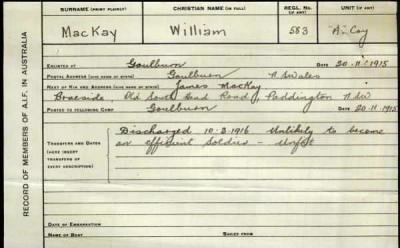 SURNAME (PRINT PLAINLY) CHRISTIAN NAME (IN FULL) REGL. No. (IF ANY) UNIT (IF ANY)
MacKay William 583 "A" Coy
ENLISTED AT Goulburn DATE 20-11-1915
POSTAL ADDRESS (GIVE NAME OF STATE) Goulburn N S Wales
NEXT OF KIN AND ADDRESS (GIVE NAME OF STATE) James MacKay
Braeside, Old South Head Road, Paddington N SW
POSTED TO FOLLOWING CAMP Goulburn 20-11-1915
Discharged 10-2-1916 Unlikely to become
TRANSFERS AND DATES an efficient Soldier - Unfit
(HERE INSERT
TRANSFERS OF
EVERY DESCRIPTION)
DATE OF EMBARKATION
NAME OF BOAT SAILED FROM
RECORD OF MEMBERS OF A.I.F. IN AUSTRALIA